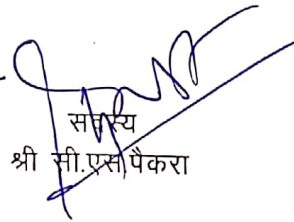 सदस्य
श्री सी.एस.पैकरा